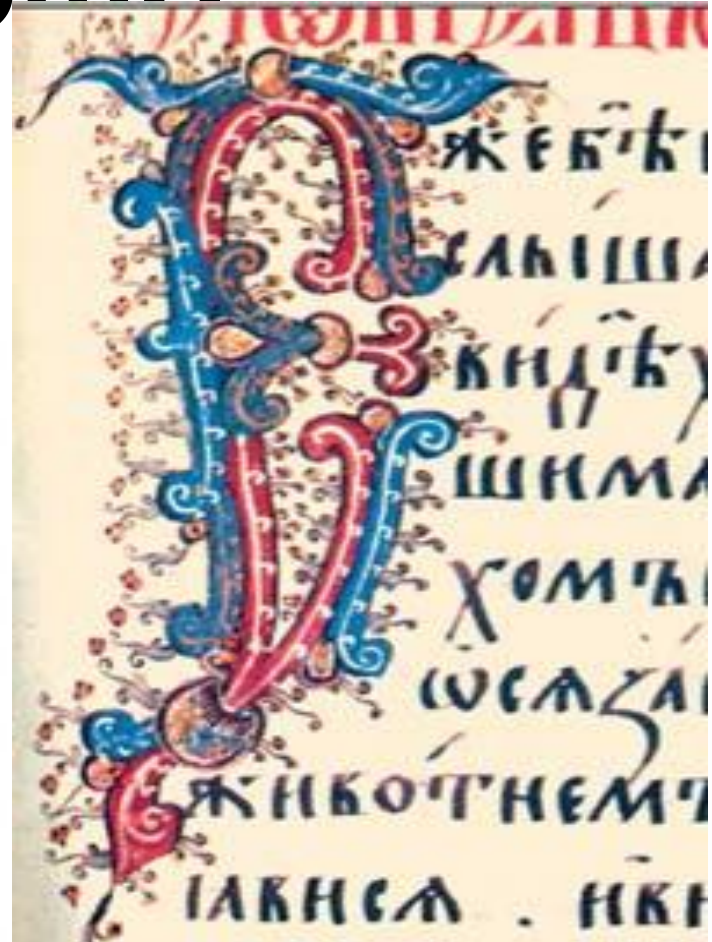 Є жебѣ
слыша
видѣх
шима
хомъ
ѡсѧза
животнемъ
ꙗвисѧ . иви